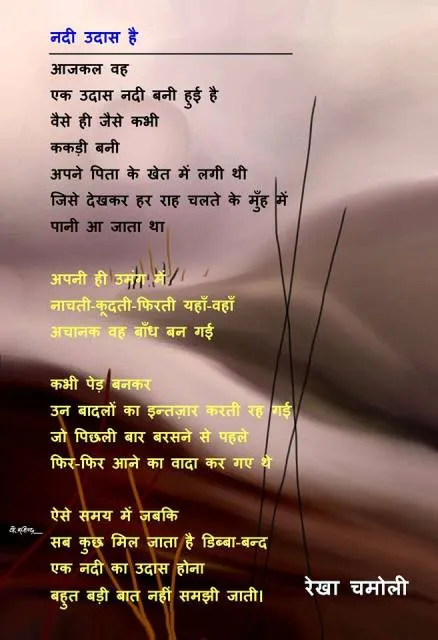 नदी उदास है
आजकल वह
एक उदास नदी बनी हुई है
वैसे ही जैसे कभी
ककड़ी बनी
अपने पिता के खेत में लगी थी
जिसे देखकर हर राह चलते के मुँह में
पानी आ जाता था
अपनी ही उमंग में
नाचती-कूदती-फिरती यहाँ-वहाँ
अचानक वह बाँध बन गई
कभी पेड़ बनकर
उन बादलों का इन्तज़ार करती रह गई
जो पिछली बार बरसने से पहले
फिर-फिर आने का वादा कर गए थे
ऐसे समय में जबकि
सब कुछ मिल जाता है डिब्बा-बन्द
एक नदी का उदास होना
बहुत बड़ी बात नहीं समझी जाती।
रेखा चमोली